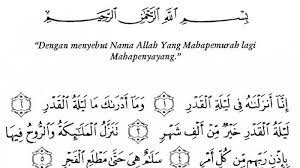 بِسْمِ اللَّهِ الرَّحْمَٰنِ الرَّحِيمِ
“Dengan menyebut Nama Allah Yang Mahapemurah lagi
Mahapenyayang.”
إِنَّا أَنزَلْنَٰهُ فِى لَيْلَةِ الْقَدْرِ ١ وَمَا أَدْرَىٰكَ مَا لَيْلَةُ الْقَدْرِ ٢
لَيْلَةُ الْقَدْرِ خَيْرٌ مِّنْ أَلْفِ شَهْرٍ ٣ تَنَزَّلُ الْمَلَٰٓئِكَةُ وَالرُّوحُ فِيهَا
بِإِذْنِ رَبِّهِم مِّن كُلِّ أَمْرٍ ٤ سَلَٰمٌ هِىَ حَتَّىٰ مَطْلَعِ الْفَجْرِ ٥